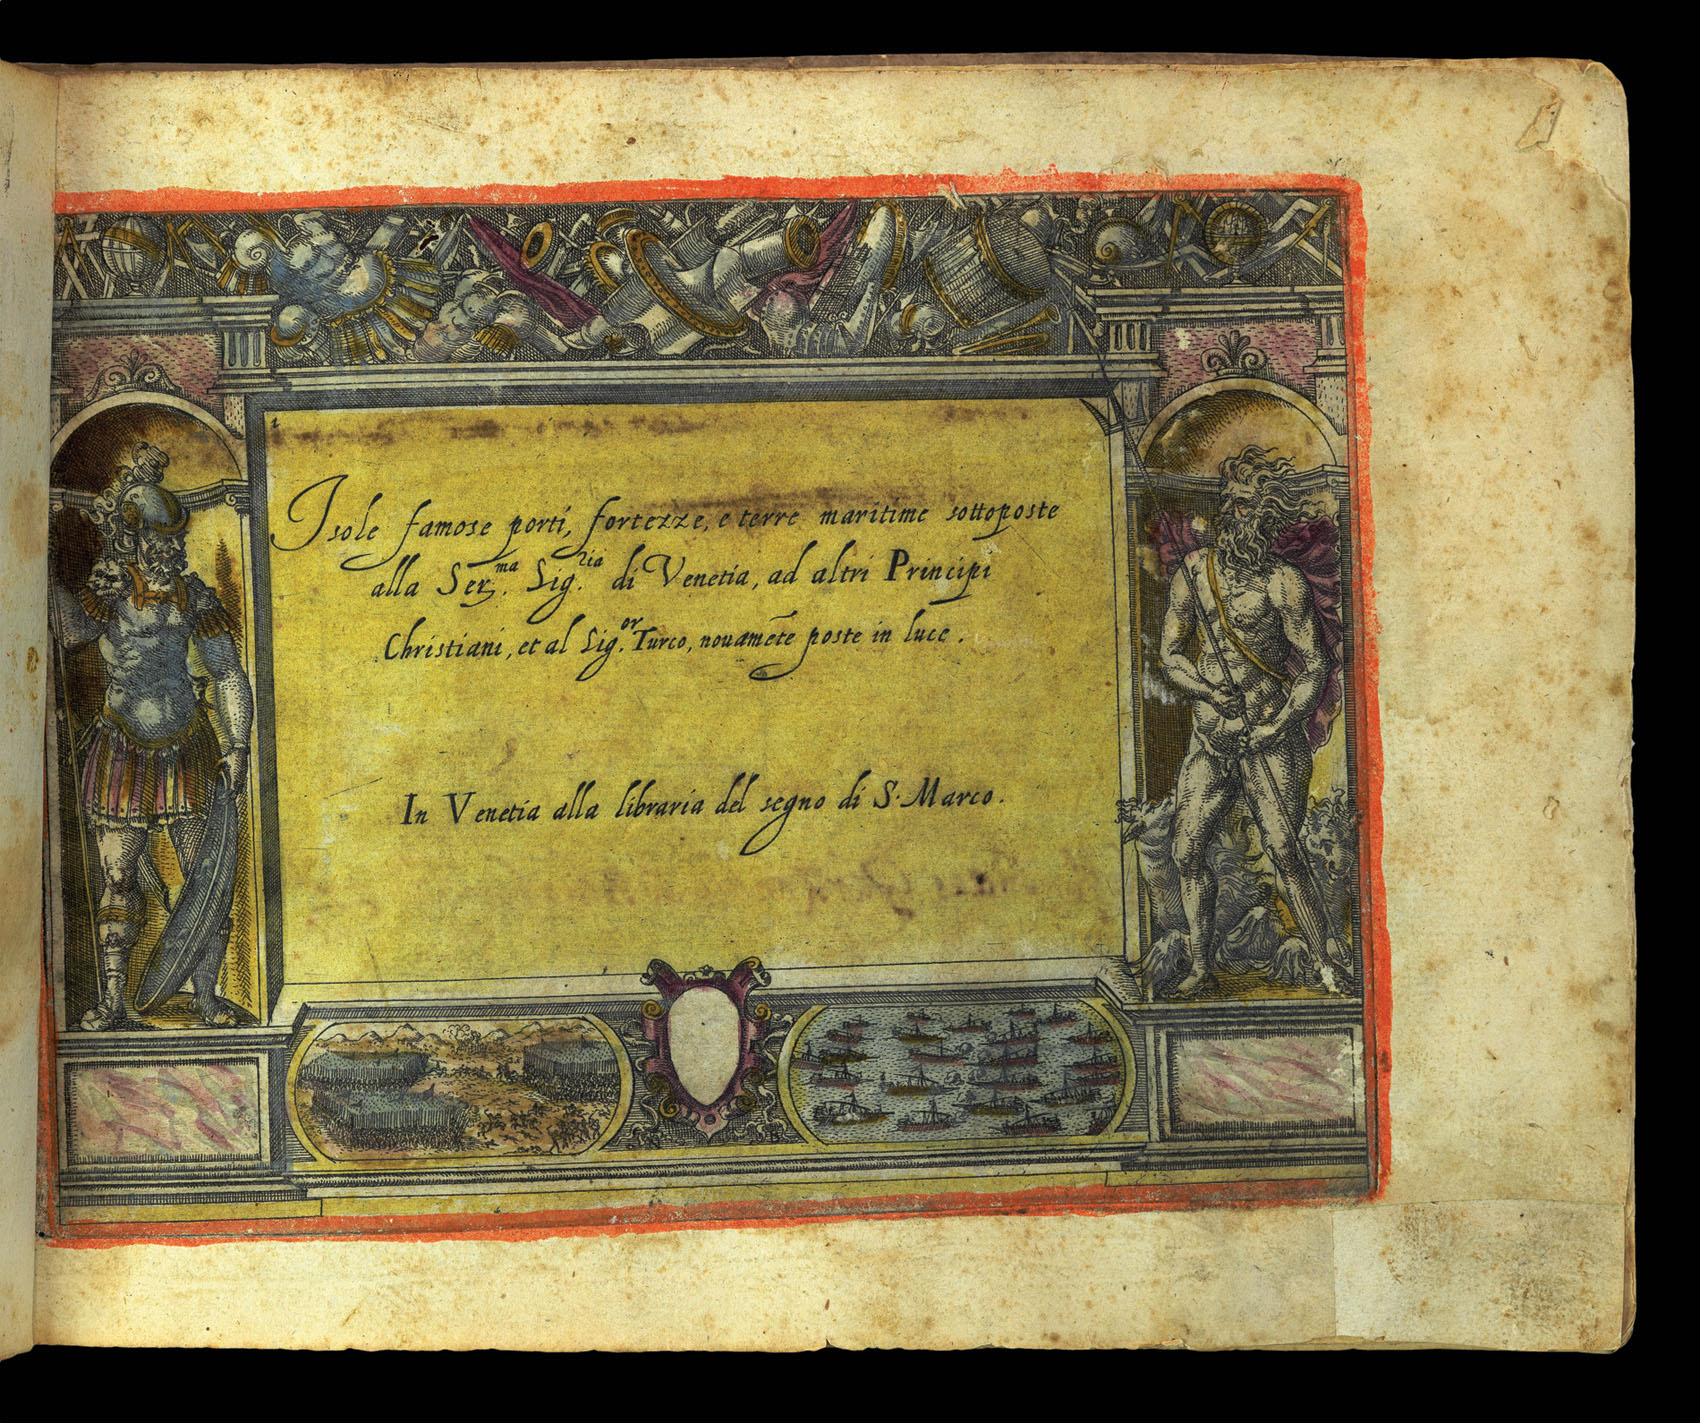 1
Isole famose porti, fortezze, e terre maritime sottoposte
alla Ser.ma Sig.ria di Venetia, ad altri Principi
Christiani, et al Sig.or Turco, novamẽte poste in luce.
In Venetia alla libraria del segno di S. Marco.